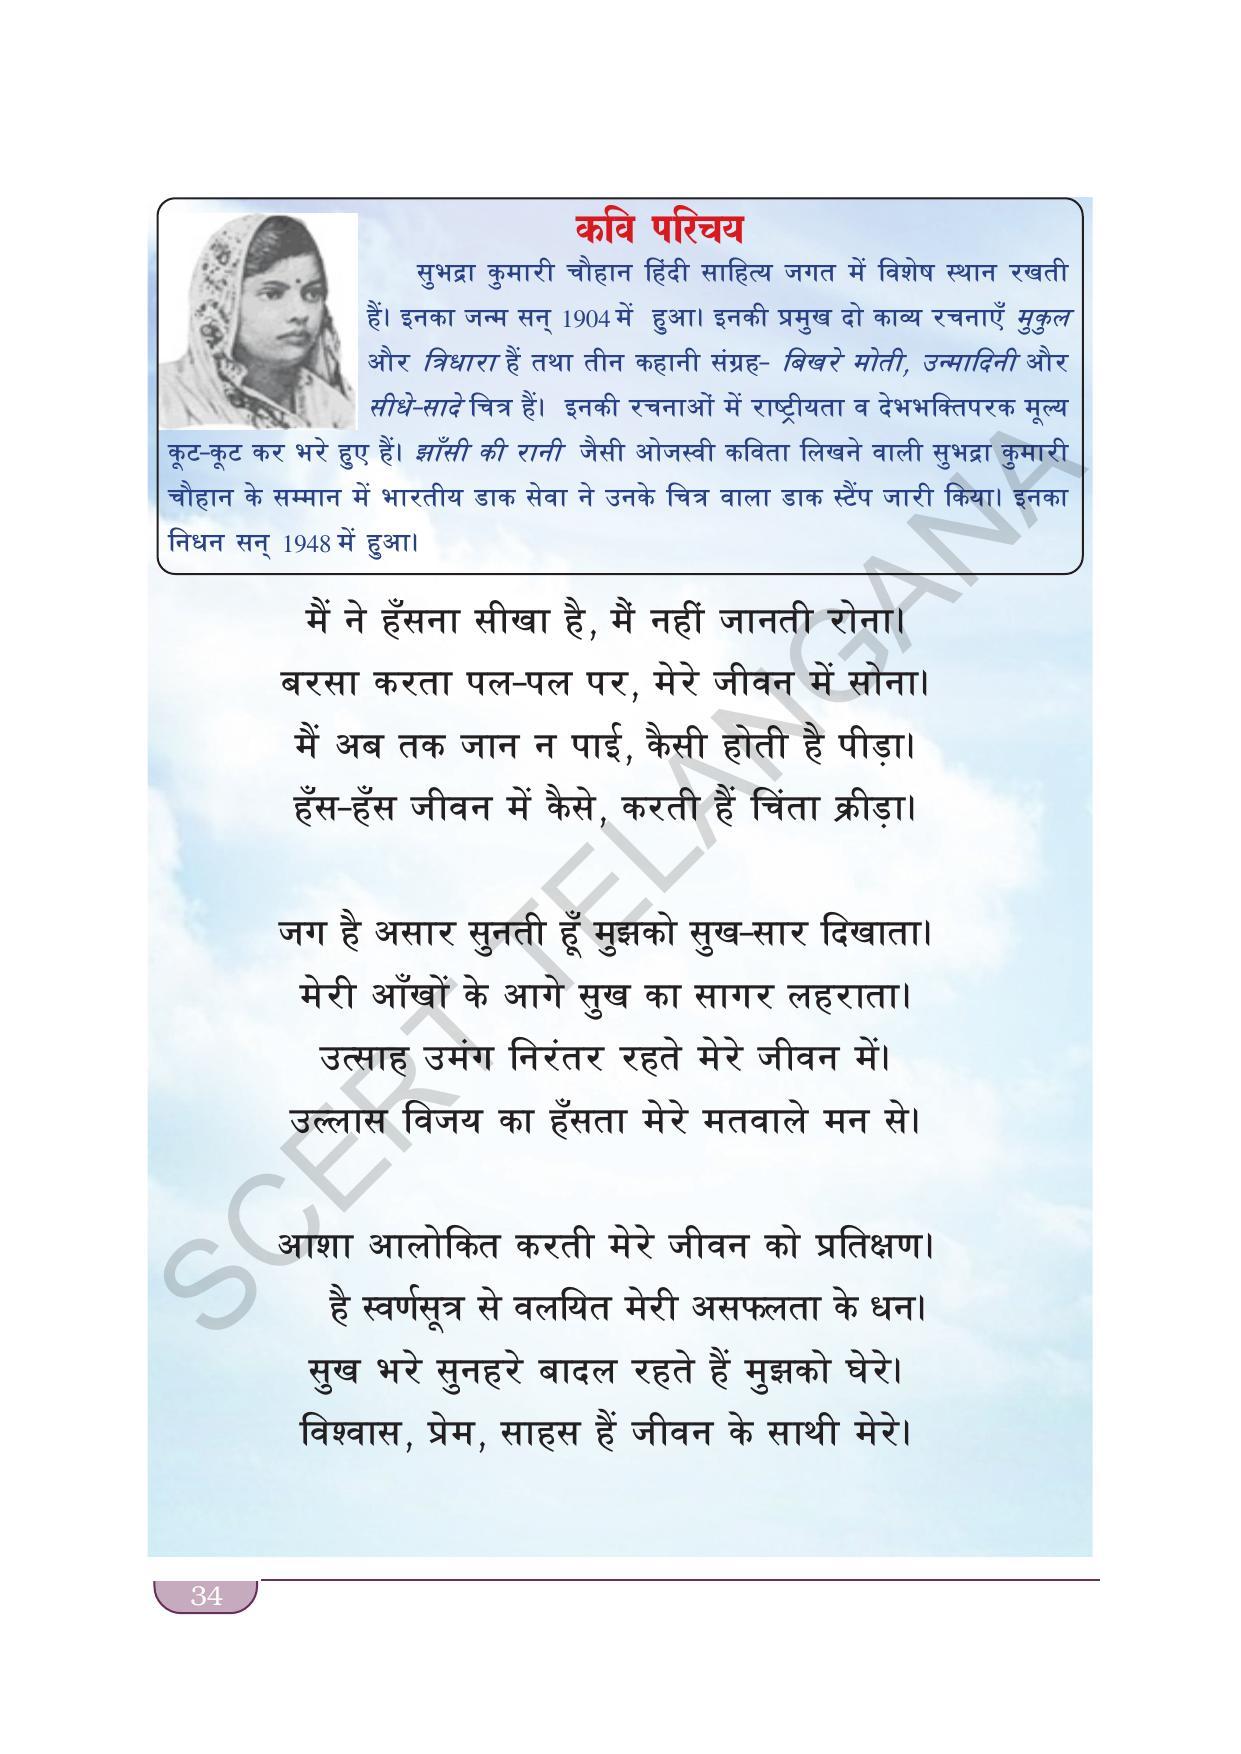 कवि परिचय
सुभद्रा कुमारी चौहान हिंदी साहित्य जगत में विशेष स्थान रखती
हैं। इनका जन्म सन् 1904 में हुआ। इनकी प्रमुख दो काव्य रचनाएँ मुकुल
और त्रिधारा हैं तथा तीन कहानी संग्रह- बिखरे मोती, उन्मादिनी और
सीधे-सादे चित्र हैं। इनकी रचनाओं में राष्ट्रीयता व देभभक्तिपरक मूल्य
कूट-कूट कर भरे हुए हैं। झाँसी की रानी जैसी ओजस्वी कविता लिखने वाली सुभद्रा कुमारी
चौहान के सम्मान में भारतीय डाक सेवा ने उनके चित्र वाला डाक स्टैंप जारी किया। इनका
निधन सन् 1948 में हुआ।
मैं ने हँसना सीखा है, मैं नहीं जानती रोना।
बरसा करता पल-पल पर, मेरे जीवन में सोना।
मैं अब तक जान न पाई, कैसी होती है पीड़ा।
हँस-हँस जीवन में कैसे, करती हैं चिंता क्रीड़ा।
जग है असार सुनती हूँ मुझको सुख-सार दिखाता।
मेरी आँखों के आगे सुख का सागर लहराता।
उत्साह उमंग निरंतर रहते मेरे जीवन में।
उल्लास विजय का हँसता मेरे मतवाले मन से।
आशा आलोकित करती मेरे जीवन को प्रतिक्षण।
है स्वर्णसूत्र से वलयित मेरी असफलता के धन।
सुख भरे सुनहरे बादल रहते हैं मुझको घेरे।
विश्वास, प्रेम, साहस हैं जीवन के साथी मेरे।
SCERT TELANGANA
34